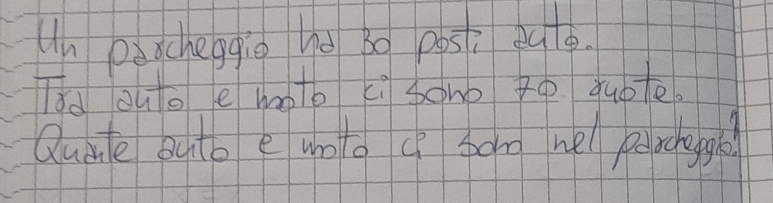 Un parcheggio ha 30 posti auto.
Tra auto e moto ci sono 70 ruote.
Quante auto e moto ci sono nel parcheggio?